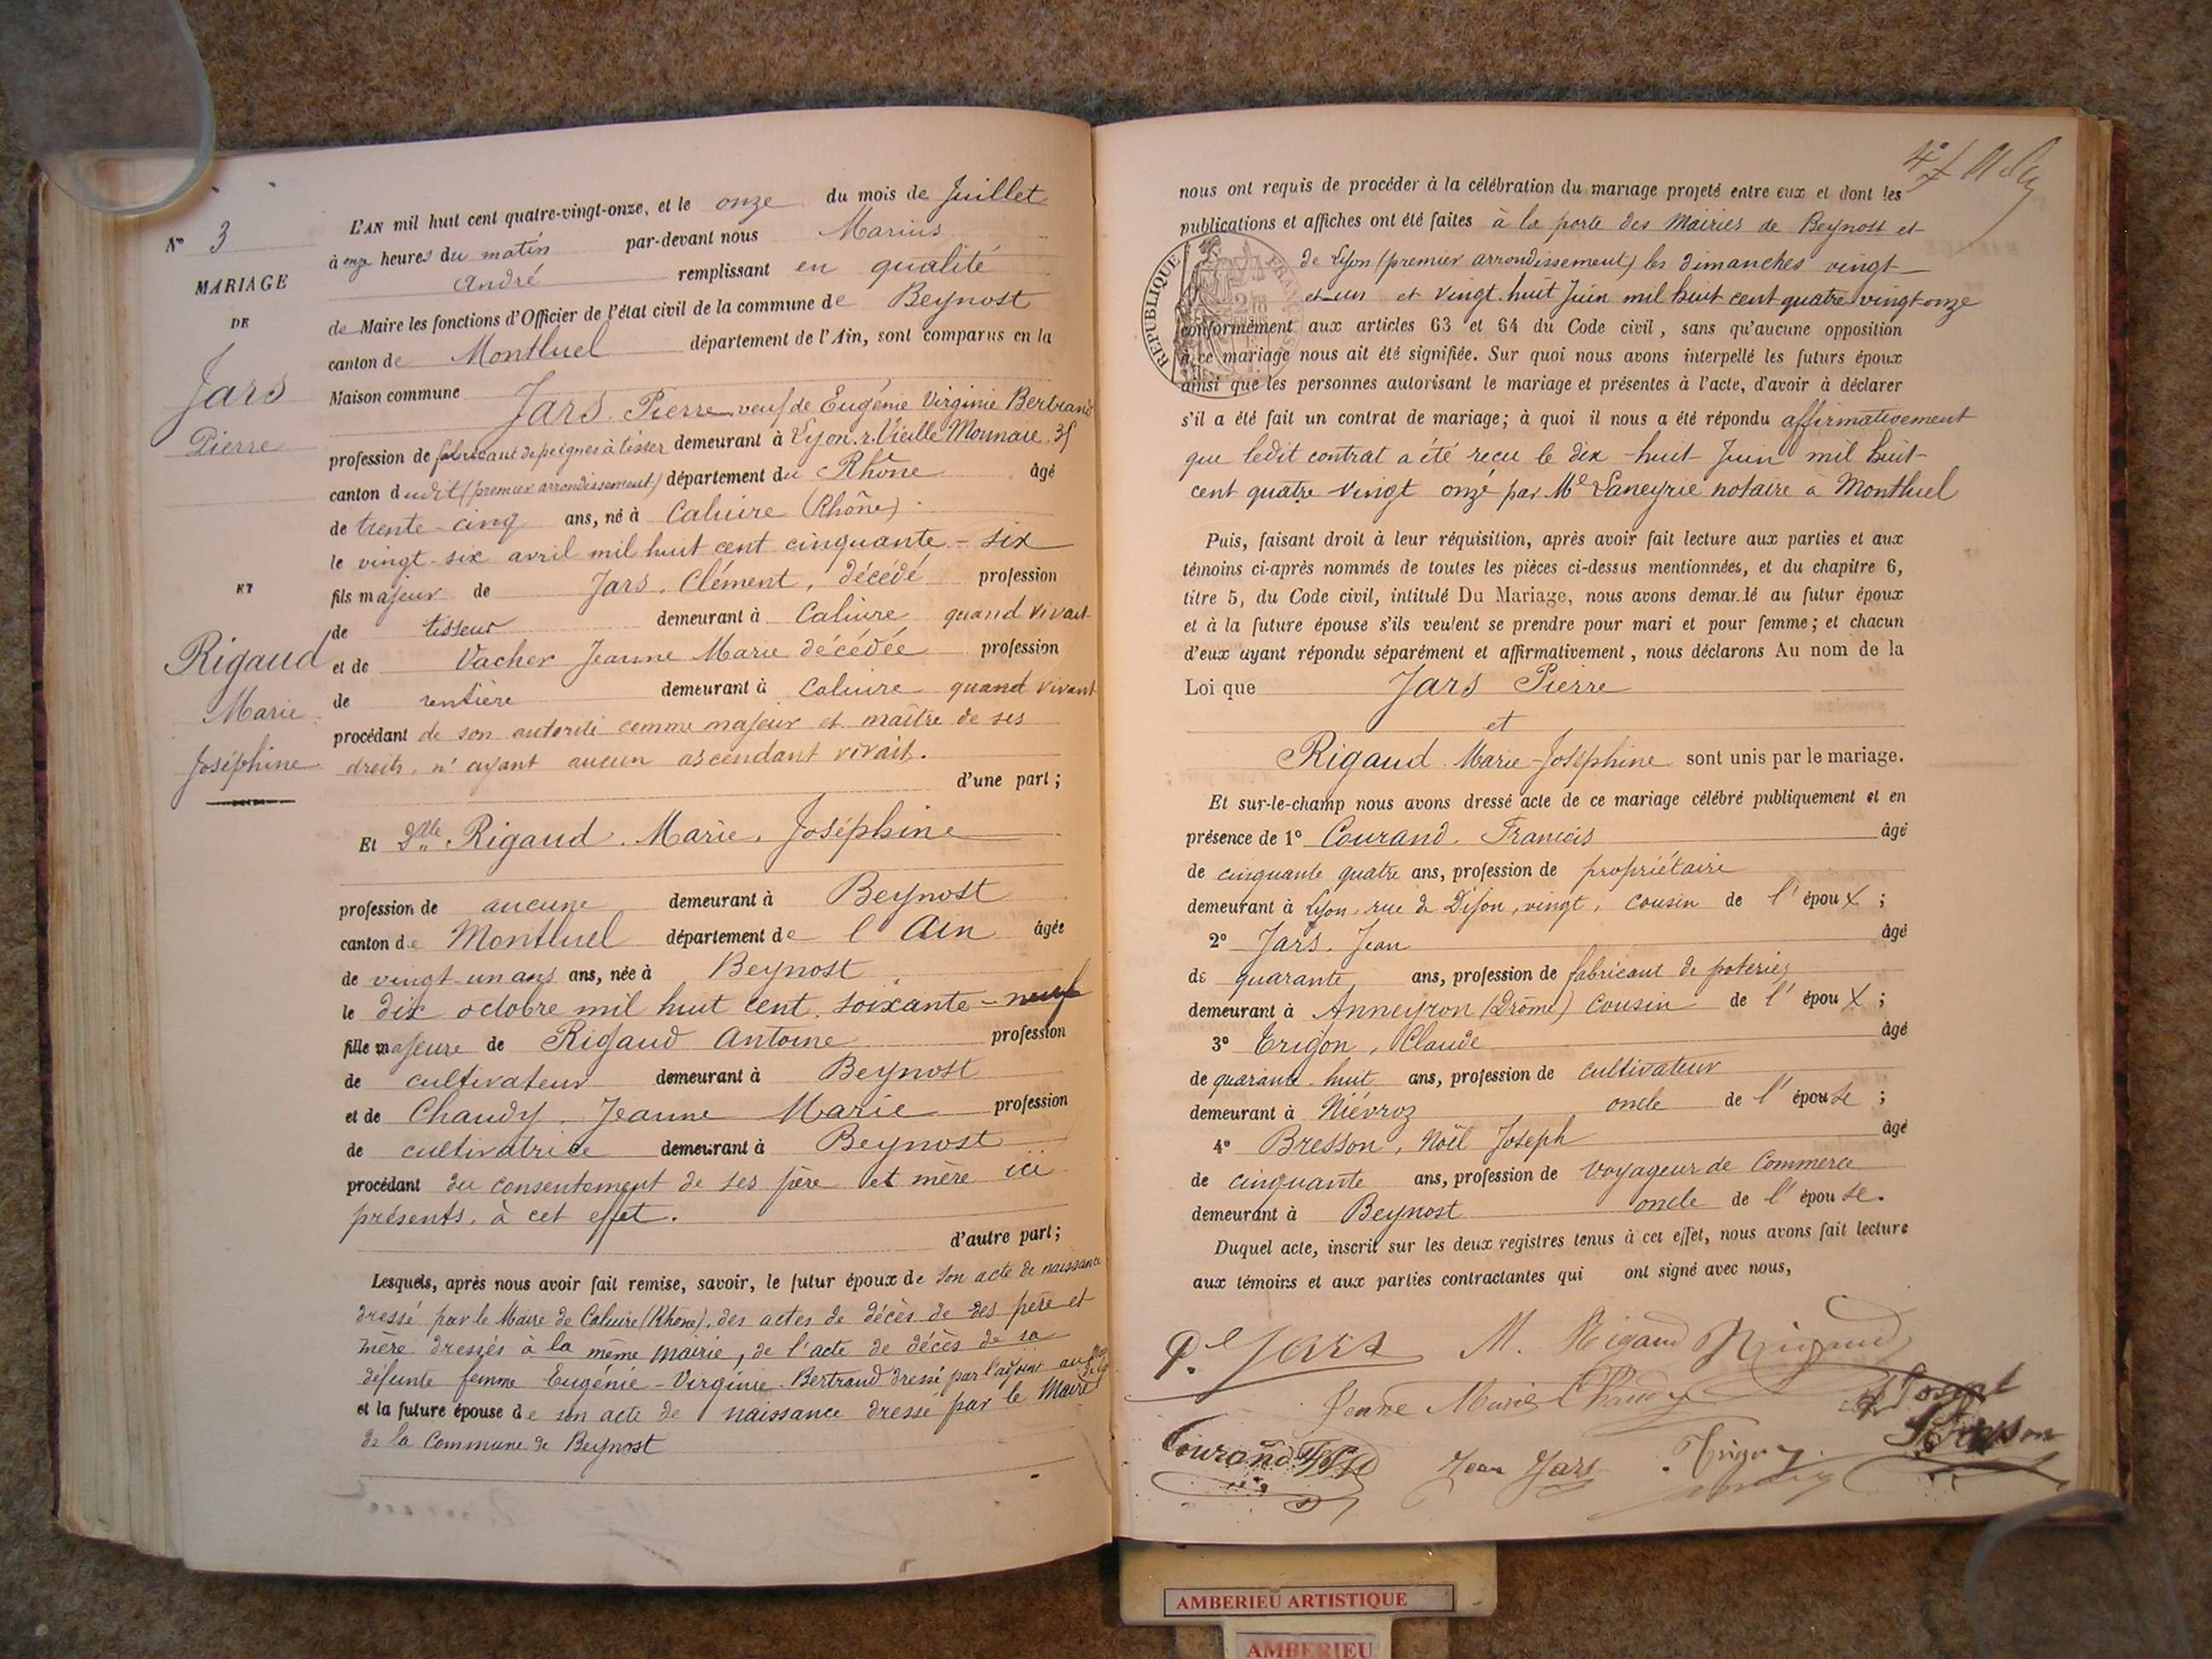 N° 3
MARIAGE
DE
Jars
Pierre
ET
Rigaud
Marie
Joséphine
L'AN mil huit cent quatre-vingt-onze, et le onze du mois de Juillet
à onze heures du matin par-devant nous Marius
André remplissant en qualité
de Maire les fonctions d'Officier de l'état civil de la commune de Beynost
canton de Montluel département de l'Ain, sont comparus en la
Maison commune Jars Pierre veuf de Eugénie Virginie Bertrand
profession de fabricant de peignes à tisser demeurant à Lyon. r. Vieille Monnaie. 35
canton dudit (premier arrondissement) département du Rhône âgé
de trente-cinq ans, né à Caluire (Rhône)
le vingt-six avril mil huit cent cinquante-six
fils majeur de Jars, Clément, décédé profession
de tisseur demeurant à Caluire quand vivait
et de Vacher Jeanne Marie décédée profession
de rentière demeurant à Caluire quand vivant
procédant de son autorité comme majeur et maître de ses
droits, n'ayant aucun ascendant vivant.
d'une part;
Et Dlle Rigaud. Marie. Joséphine
profession de aucune demeurant à Beynost
canton de Montluel département de l'Ain âgée
de vingt-un ans ans, née à Beynost
le dix octobre mil huit cent soixante-neuf
fille majeure de Rigaud Antoine profession
de cultivateur demeurant à Beynost
et de Chaudy Jeanne Marie profession
de cultivatrice demeurant à Beynost
procédant du consentement de ses père et mère ici
présents, à cet effet.
d'autre part;
Lesquels, après nous avoir fait remise, savoir, le futur époux de son acte de naissance
dressé par le Maire de Caluire (Rhône), des actes de décès de ses père et
mère dressés à la même mairie, de l'acte de décès de sa
défunte femme Eugénie-Virginie Bertrand dressé par l'adjoint au
et la future épouse de son acte de naissance dressé par le Maire
de la Commune de Beynost
4e
nous ont requis de procéder à la célébration du mariage projeté entre eux et dont les
publications et affiches ont été faites à la porte des Mairies de Beynost et
de Lyon (premier arrondissement) les dimanches vingt-
et-un et vingt-huit Juin mil huit cent quatre-vingt-onze
RÉPUBLIQUE
conformément aux articles 63 et 64 du Code civil, sans qu'aucune opposition
à ce mariage nous ait été signifiée. Sur quoi nous avons interpellé les futurs époux
ainsi que les personnes autorisant le mariage et présentes à l'acte, d'avoir à déclarer
s'il a été fait un contrat de mariage; à quoi il nous a été répondu affirmativement
que ledit contrat a été reçu le dix-huit Juin mil huit-
cent quatre vingt onze par Me Laneyrie notaire à Montluel
Puis, faisant droit à leur réquisition, après avoir fait lecture aux parties et aux
témoins ci-après nommés de toutes les pièces ci-dessus mentionnées, et du chapitre 6,
titre 5, du Code civil, intitulé Du Mariage, nous avons demandé au futur époux
et à la future épouse s'ils veulent se prendre pour mari et pour femme; et chacun
d'eux ayant répondu séparément et affirmativement, nous déclarons Au nom de la
Loi que Jars Pierre
et
Rigaud Marie-Joséphine sont unis par le mariage.
Et sur-le-champ nous avons dressé acte de ce mariage célébré publiquement et en
présence de 1° Courand. François âgé
de cinquante quatre ans, profession de propriétaire
demeurant à Lyon, rue de Dijon, vingt, cousin de l'époux;
2° Jars. Jean âgé
de quarante ans, profession de fabricant de poteries
demeurant à Anneyron (Drôme) cousin de l'époux;
3° Trigon, Claude âgé
de quarante-huit ans, profession de cultivateur
demeurant à Niévroz oncle de l'épouse;
4° Bresson, Noël Joseph âgé
de cinquante ans, profession de voyageur de Commerce
demeurant à Beynost oncle de l'épouse.
Duquel acte, inscrit sur les deux registres tenus à cet effet, nous avons fait lecture
aux témoins et aux parties contractantes qui ont signé avec nous,
P. Jars M. Rigaud Rigaud
Jeanne Marie Chaudy
Courand Jean Jars Trigon Bresson
AMBERIEU ARTISTIQUE
AMBERIEU